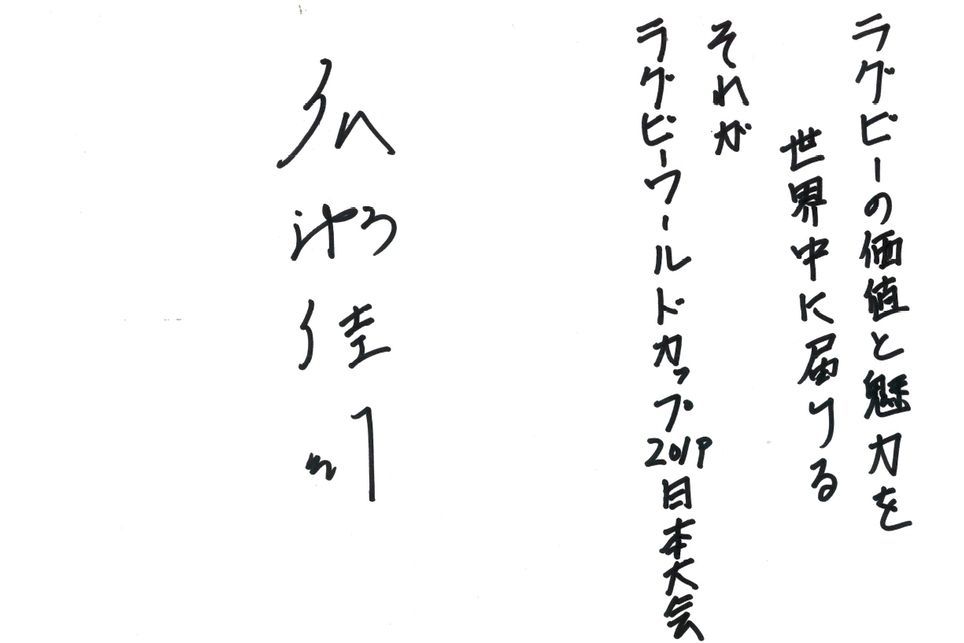 ラグビーの価値と魅力を
世界中に届ける
それが
ラグビーワールドカップ2019日本大会